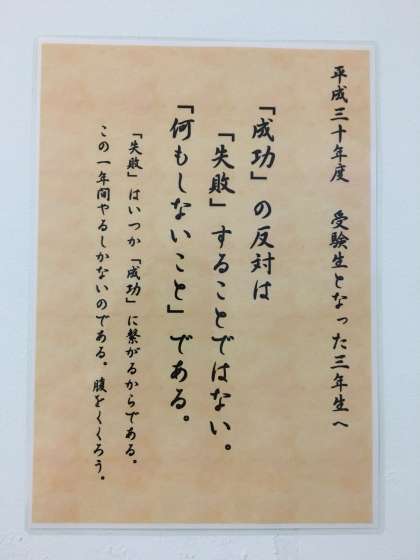 平成三十年度　受験生となった三年生へ
「成功」の反対は
「失敗」することではない。
「何もしないこと」である。
「失敗」はいつか「成功」に繋がるからである。
この一年間やるしかないのである。腹をくくろう。